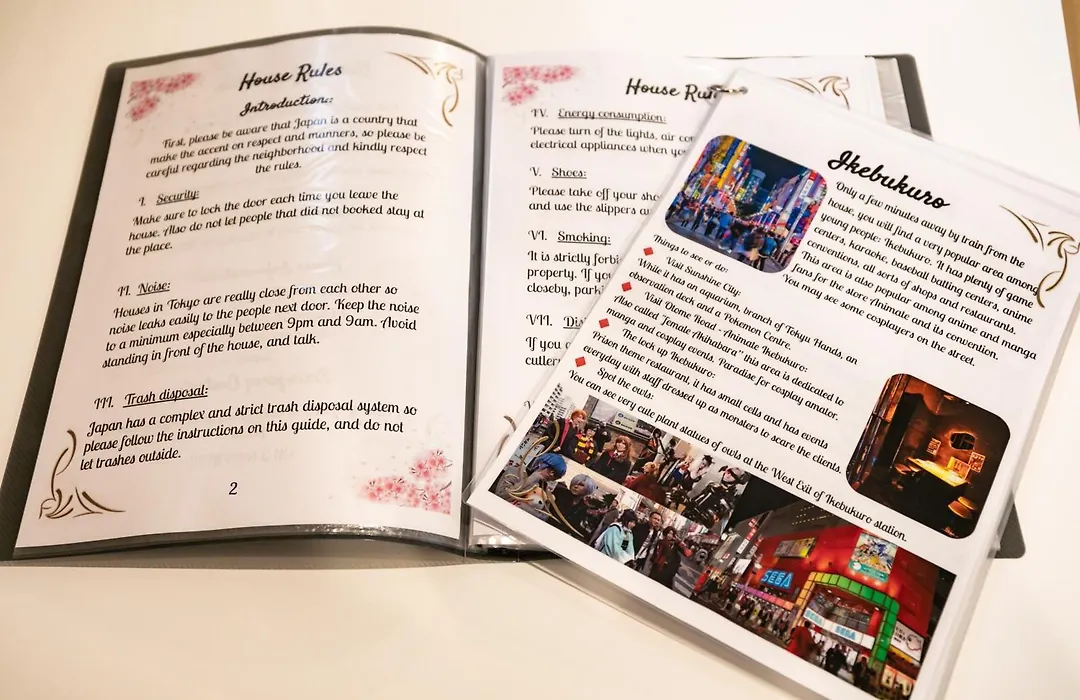 House Rules
Introduction:
First, please be aware that Japan is a country that
make the accent on respect and manners, so please be
careful regarding the neighborhood and kindly respect
the rules.
I. Security:
Make sure to lock the door each time you leave the
house. Also do not let people that did not booked stay at
the place.
II. Noise:
Houses in Tokyo are really close from each other so
noise leaks easily to the people next door. Keep the noise
to a minimum especially between 9pm and 9am. Avoid
standing in front of the house, and talk.
III. Trash disposal:
Japan has a complex and strict trash disposal system so
please follow the instructions on this guide, and do not
let trashes outside.
2
House
IV. Energy consumption:
Please turn of the lights, air
electrical appliances when
V. Shoes:
Please take off your
and use the slippers
VI. Smoking:
It is strictly
property. If
closeby,
VII.
If you
Ikebukuro
Only a few minutes away by train from the
house, you will find a very popular area among
young people: Ikebukuro. It has plenty of game
centers, karaoke, baseball batting centers, anime
conventions, all sorts of shops and restaurants.
This area is also popular among anime and manga
fans for the store Animate and its convention.
You may see some cosplayers on the street.
Things to see or do:
Visit Sunshine City:
While it has an aquarium, branch of Tokyu Hands, an
observation deck and a Pokemon Centre.
Visit Otome Road - Animate Ikebukuro:
Also called "Female Akihabara" this area is dedicated to
manga and cosplay events. Paradise for cosplay amator.
The lock up Ikebukuro:
Prison theme restaurant, it has small cells and has events
everyday with staff dressed up as monsters to scare the clients.
Spot the owls:
You can see very cute plant statues of owls at the West Exit of Ikebukuro station.
SEGA
SEGA SEGA